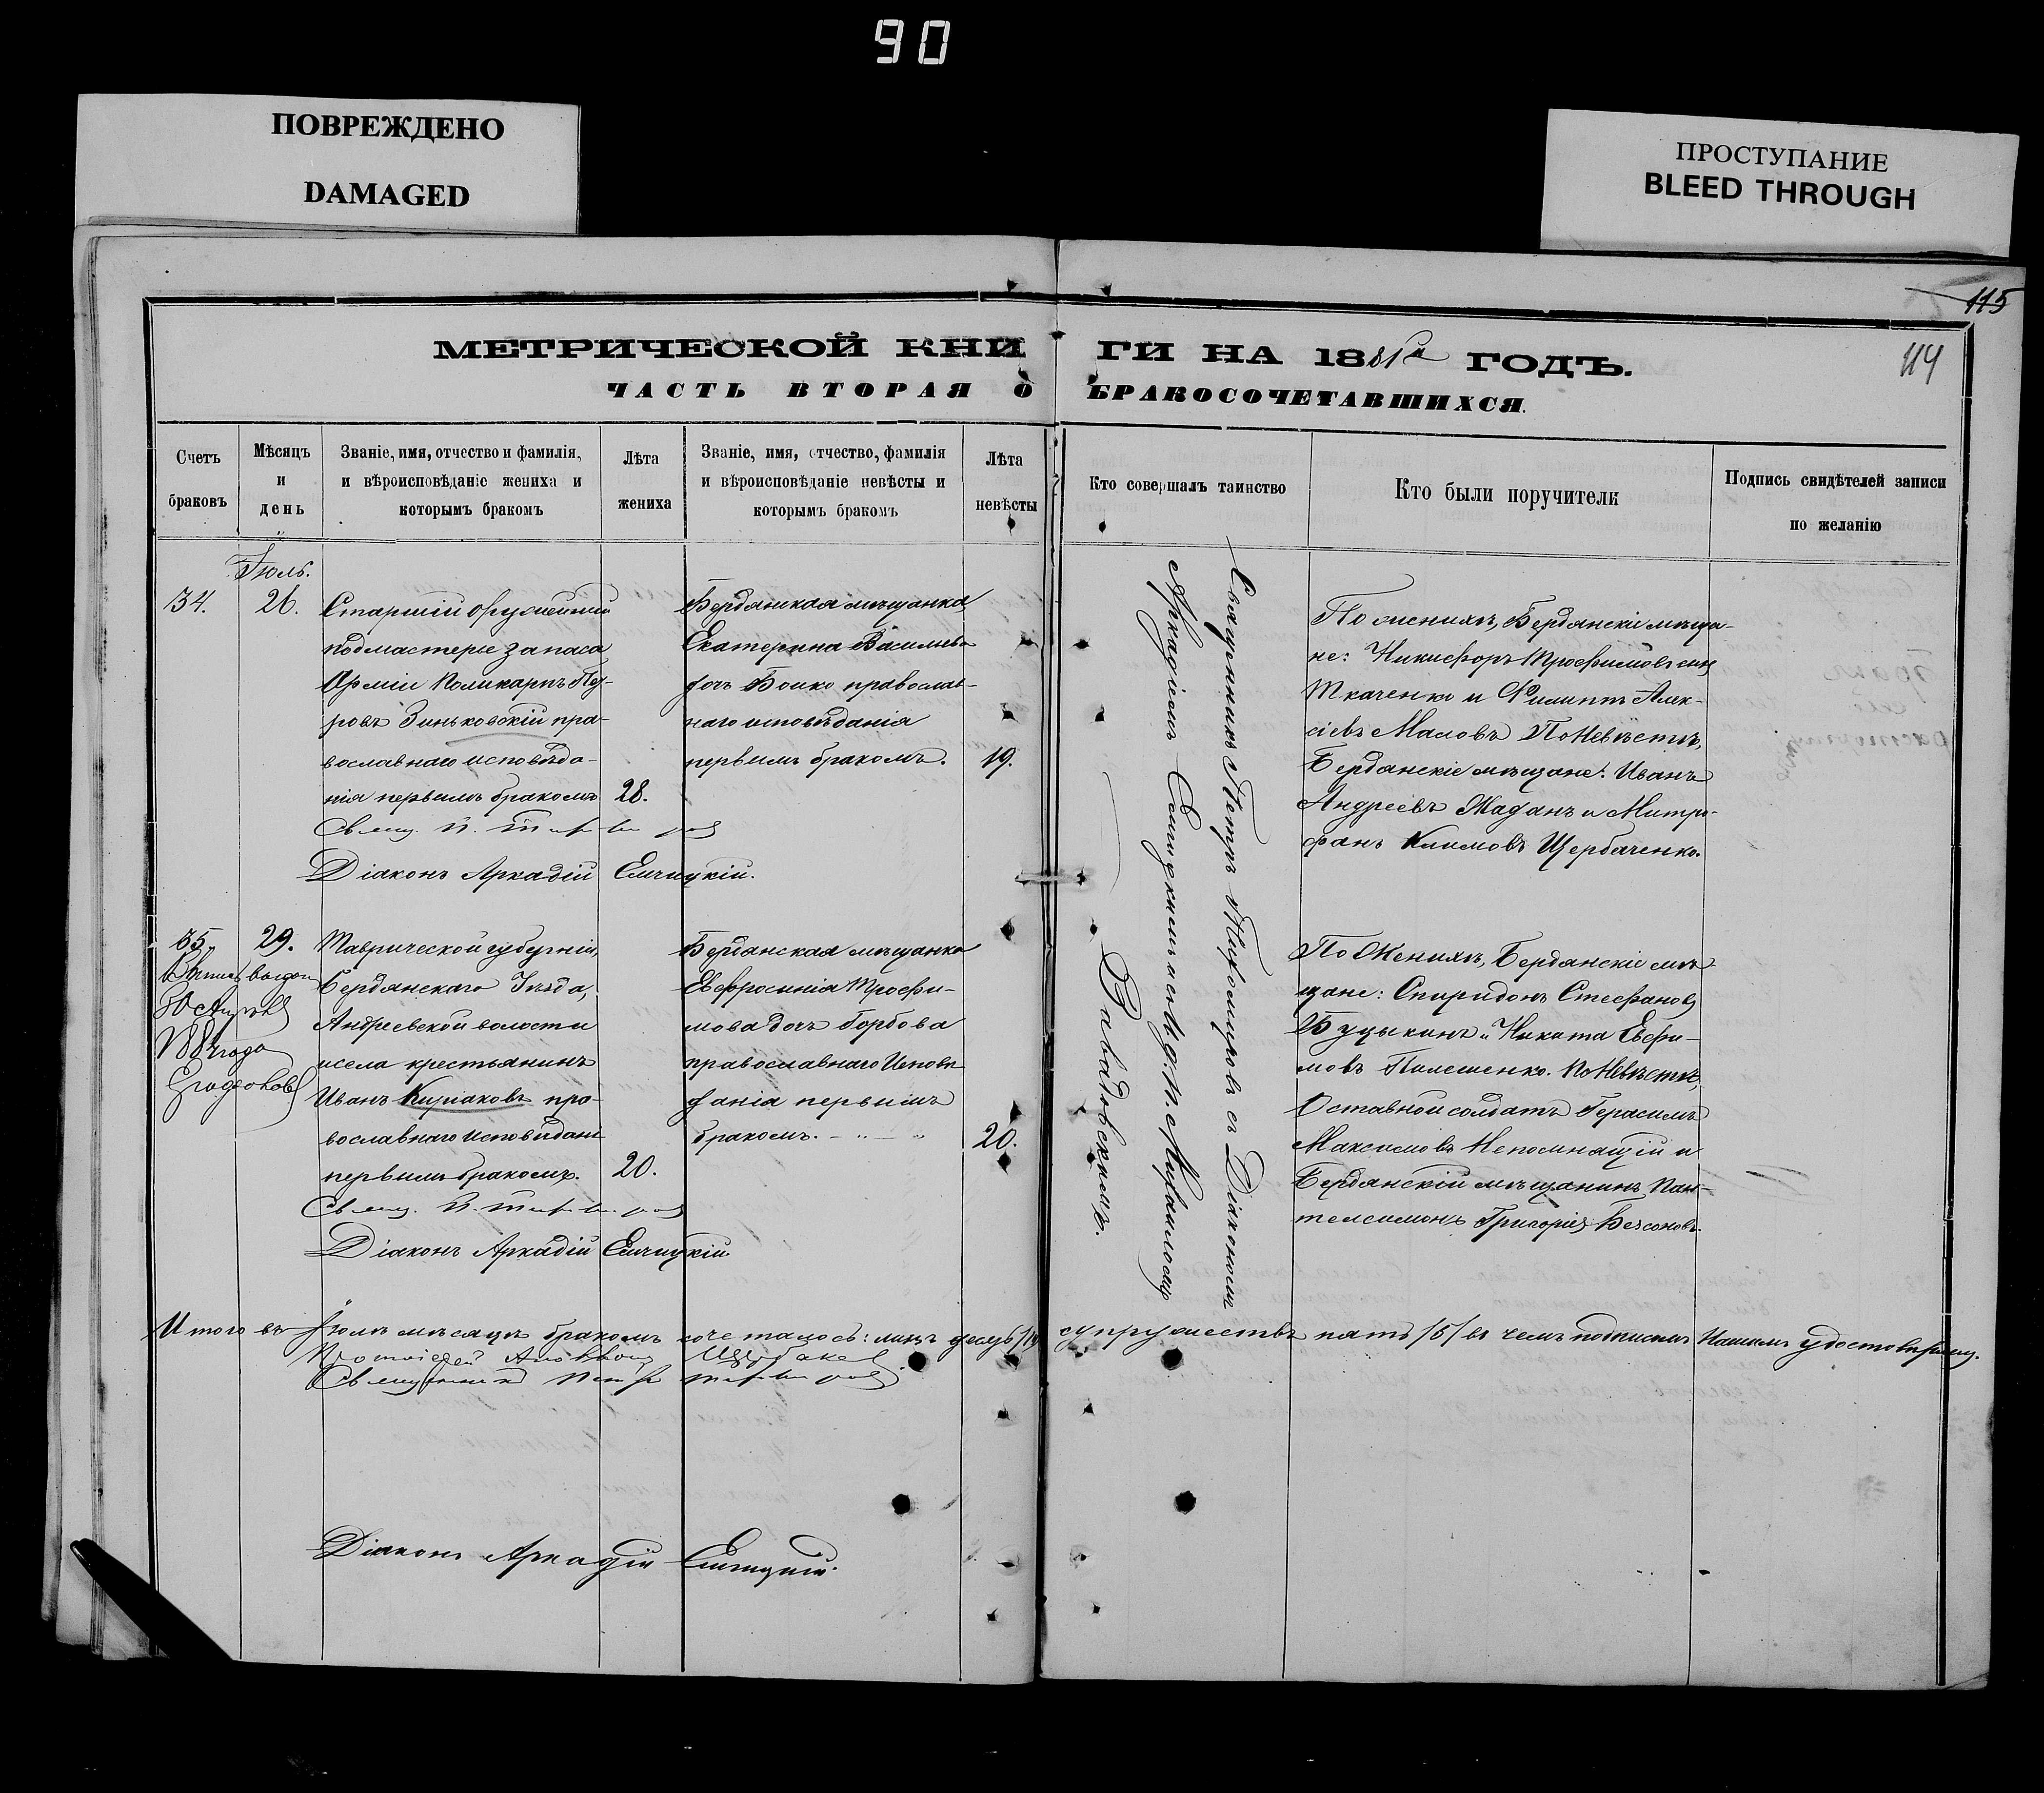 90
ПОВРЕЖДЕНО
DAMAGED
ПРОСТУПАНИЕ
BLEED THROUGH
115
114
МЕТРИЧЕСКОЙ КНИ ГИ НА 1881й ГОДЪ.
ЧАСТЬ ВТОРАЯ О БРАКОСОЧЕТАВШИХСЯ.
Счетъ браковъ
Мѣсяцъ и день
Званіе, имя, отчество и фамилія,
и вѣроисповѣданіе жениха и
которымъ бракомъ
Лѣта жениха
Званіе, имя, отчество, фамилія
и вѣроисповѣданіе невѣсты и
которымъ бракомъ
Лѣта невѣсты
Кто совершалъ таинство
Кто были поручители
Подпись свидѣтелей записи
по желанію
Іюль.
34. 26.
Старшій оружейный
подмастерье запаса
Арміи Поликарпъ Пет-
ровъ Зиньковскій пра-
вославнаго исповѣда-
нія первымъ бракомъ 28.
Бердянская мѣщанка
Екатерина Васильева
дочь Бойко православ-
наго исповѣданія
первымъ бракомъ. 19.
Священникъ Петръ Тихомировъ съ Діакономъ
Аркадіемъ
По женихѣ, Бердянскіе мѣща-
не: Никифоръ Трофимовъ сынъ
Ткаченко и Филиппъ Алек-
сѣевъ Маловъ По Невѣстѣ,
Бердянскіе мѣщане: Иванъ
Андреевъ Жаданъ и Митро-
фанъ Климовъ Щербаченко.
Діаконъ Аркадій
35. 29.
1884 года
Таврической губерніи,
Бердянскаго Уѣзда,
Андреевской волости
и села крестьянинъ
Иванъ Киріаковъ пра-
вославнаго исповѣдані
первымъ бракомъ. 20.
Бердянская мѣщанка
Евфросинія Трофи-
мова дочь Горбова
православнаго Исповѣ-
данія первымъ
бракомъ. 20.
По Женихѣ, Бердянскіе мѣ-
щане: Спиридонъ Стефановъ
Буцыкинъ и Никита Ефи-
мовъ Пилешенко. По Невѣстѣ,
Отставной солдатъ Герасимъ
Максимовъ Непомнящій и
Бердянскій мѣщанинъ Пан-
телеимонъ Григорьев Безсоновъ.
Діаконъ Аркадій
Итого въ Іюлѣ мѣсяцѣ бракомъ сочеталось: лицъ десять /10/ супружествъ пять /5/ въ чемъ подписомъ Нашимъ удостовѣряемъ.
Священникъ Петръ Тихомировъ
Діаконъ Аркадій